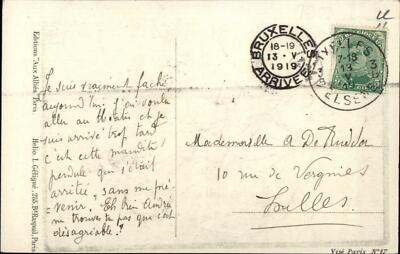 BRUXELLES
18-19
13 · V
1919
ARRIVÉE
7-18
13
V
ELSENE
Je suis vraiment fâché
aujourd'hui j'ai voulu
aller au et je
suis arrivé trop tard
c'est cette maudite
pendule qui s'était
arrêtée, sans me pré-
venir. Eh bien André
ne trouves tu pas que c'est
désagréable?
Mademoiselle A De Ridder
10 rue de Vergnies
Ixelles
Editions "Aux Alliés" Paris
Helio. L. Géligné, 255, Bd Raspail, Paris
Visé Paris N° 17